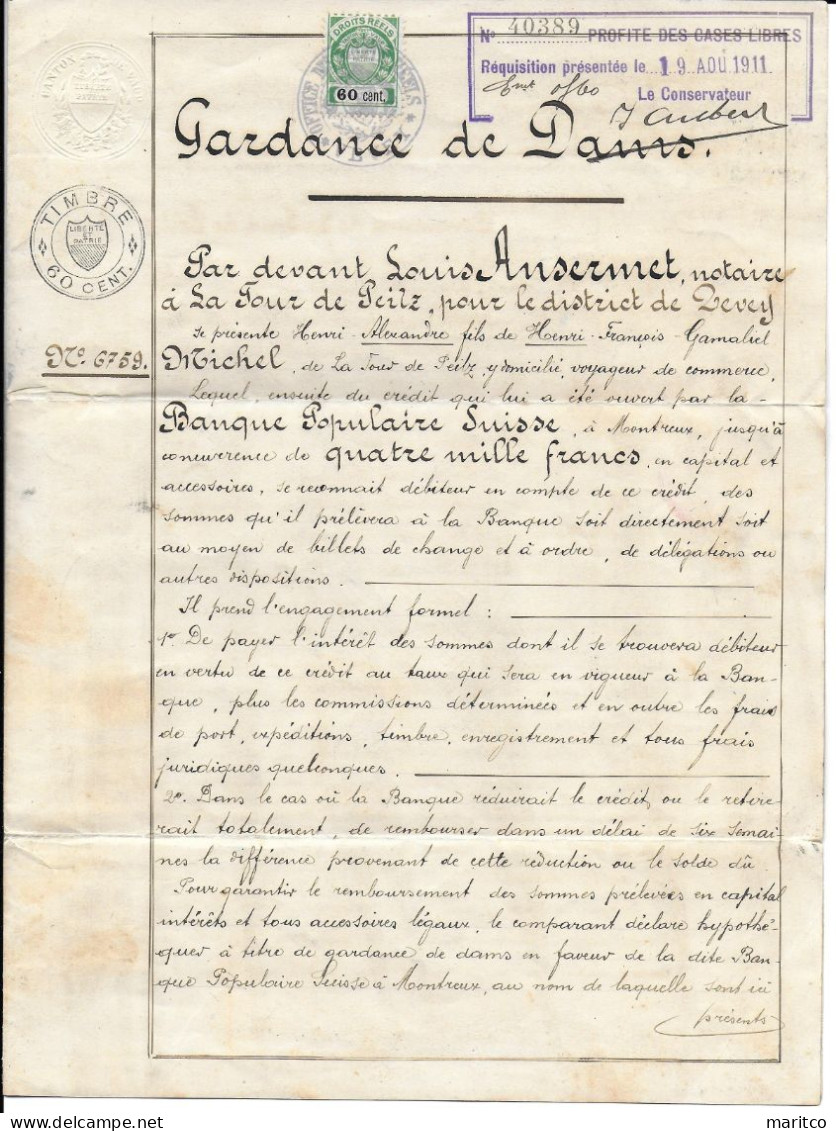 CANTON DE VAUD
LIBERTE
PATRIE
DROITS RÉELS
LIBERTE
ET
PATRIE
60 cent.
No 40389 PROFITE DES CASES LIBRES
Réquisition présentée le 19 AOU 1911
Le Conservateur
Gardance de Dams.
TIMBRE
LIBERTE
ET
PATRIE
60 CENT.
Par devant Louis Ansermet, notaire
à La Tour de Peilz, pour le district de Vevey
se présente Henri-Alexandre fils de Henri-François-Gamaliel
No. 6759.
Michel, de La Tour de Peilz, y domicilié, voyageur de commerce,
Lequel, ensuite du crédit qui lui a été ouvert par la
Banque Populaire Suisse, à Montreux, jusqu'à
concurrence de quatre mille francs, en capital et
accessoires, se reconnait débiteur en compte de ce crédit, des
sommes qu'il prélèvera à la Banque soit directement soit
au moyen de billets de change et à ordre, de délégations ou
autres dispositions.
Il prend l'engagement formel :
1o. De payer l'intérêt des sommes dont il se trouvera débiteur
en vertu de ce crédit au taux qui sera en vigueur à la Ban-
que, plus les commissions déterminées et en outre les frais
de port, expéditions, timbre, enregistrement et tous frais
juridiques quelconques.
2o. Dans le cas où la Banque réduirait le crédit, ou le retire
rait totalement, de rembourser dans un délai de six semai
nes la différence provenant de cette réduction ou le solde dû
Pour garantir le remboursement des sommes prélevées en capital
intérêts et tous accessoires légaux, le comparant déclare hypothé-
quer à titre de gardance de dams en faveur de la dite Ban-
que Populaire Suisse à Montreux, au nom de laquelle sont ici
présents
maritco